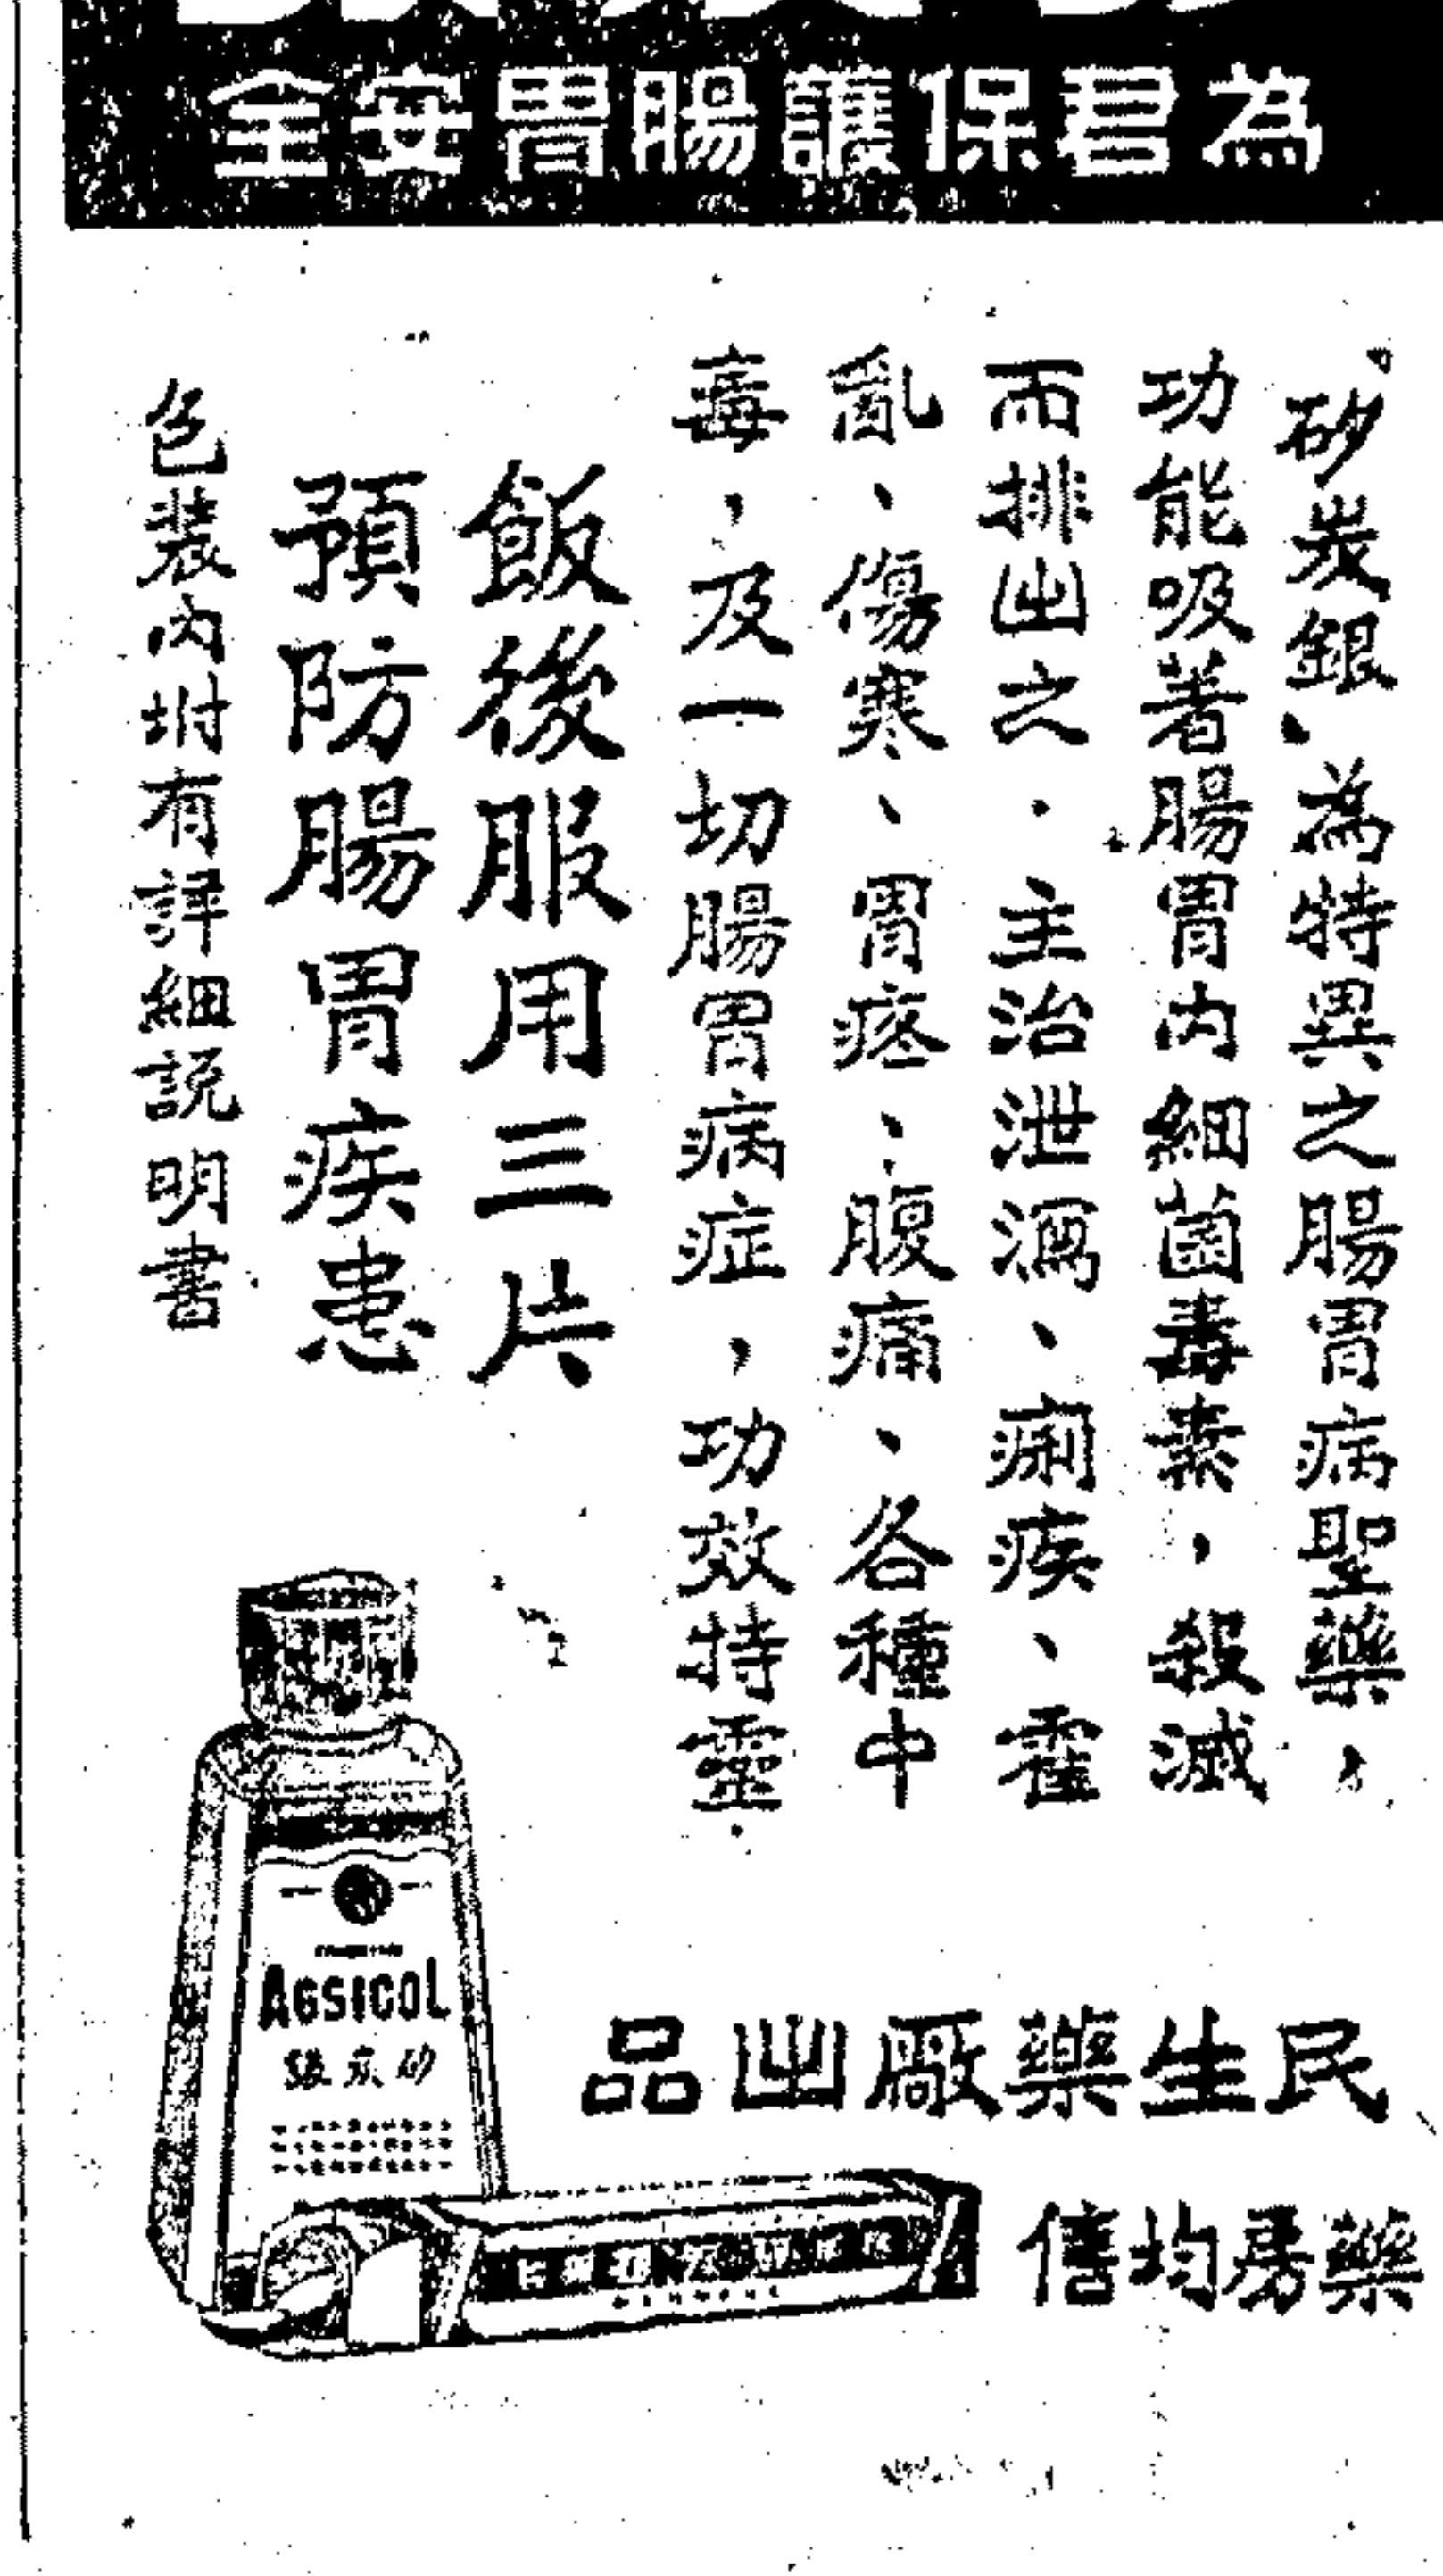 為君保護腸胃安全
“砂炭銀、為特異之腸胃病聖藥，
功能吸着腸胃內細菌毒素，殺滅
而排出之．主治泄瀉、痢疾、霍
亂、傷寒、胃疼、腹痛、各種中
毒，及一切腸胃病症，功效特靈．
飯後服用三片
預防腸胃疾患
包裝內坿有詳細説明書
AGSICOL
砂炭銀
民生藥厰出品
藥房均售